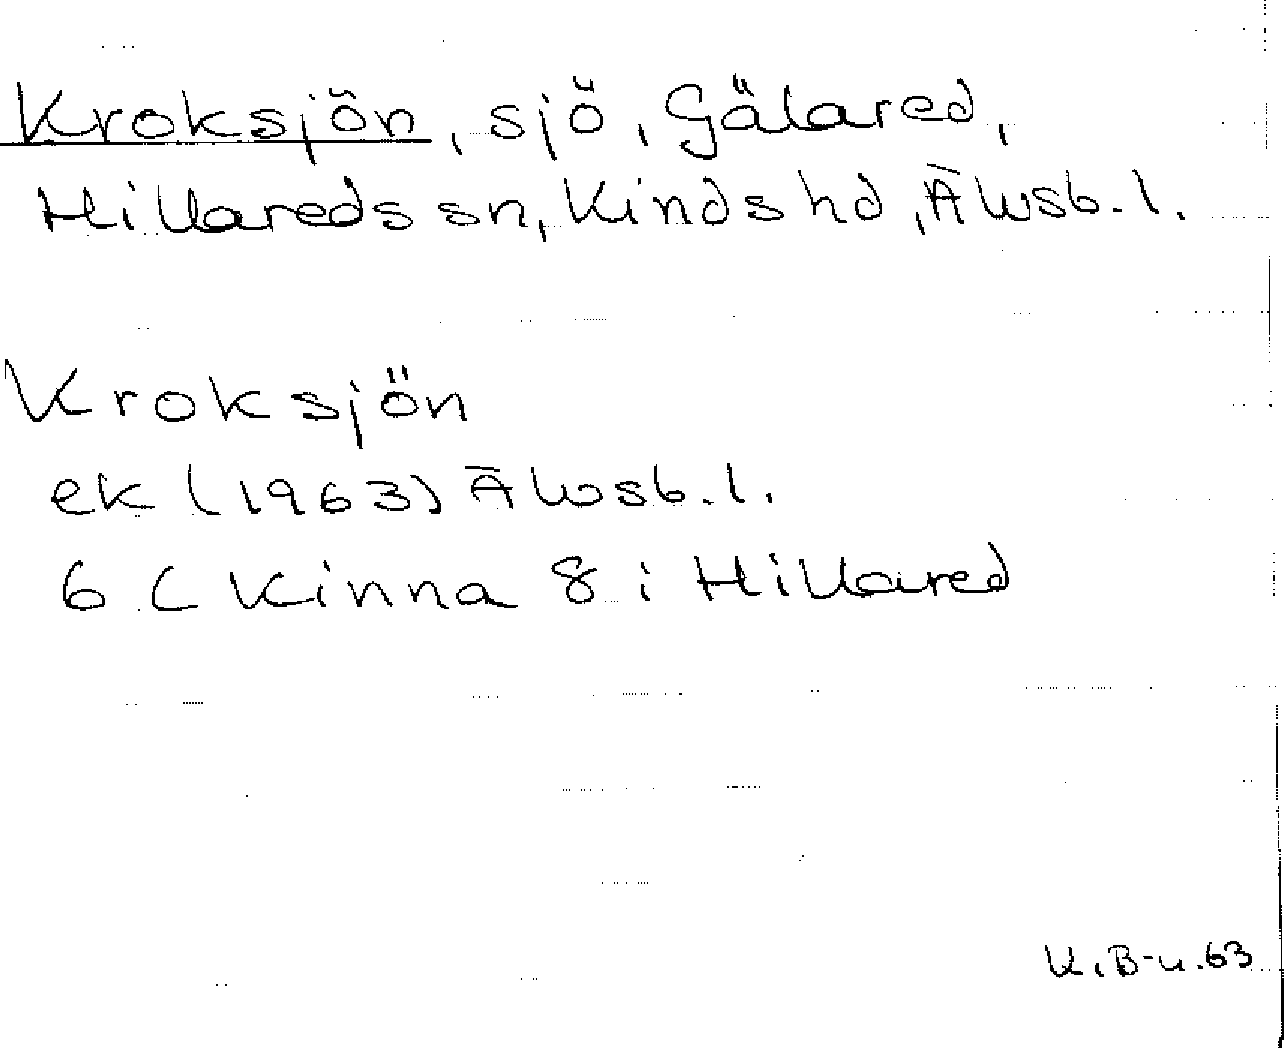 Kroksjön, sjö, Gälared,
Hillareds sn, Kinds hd, Älvsb. l.
Kroksjön
ek (1963) Älvsb. l.
6 C Kinna 8 i Hillared
K. B-u. 63